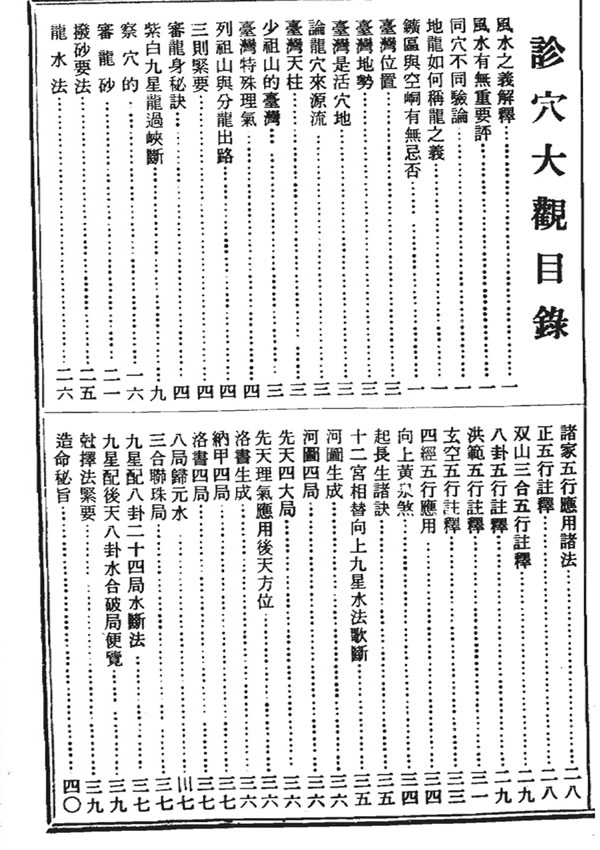 診穴大觀目錄
風水之義解釋 一
風水有無重要評 一
同穴不同驗論 一
地龍如何稱龍之義 一
鑛區與空峒有無忌否 一
臺灣位置 三
臺灣地勢 三
臺灣是活穴地 三
論龍穴來源流 三
臺灣天柱 三
少祖山的臺灣 三
臺灣特殊理氣 四
列祖山與分龍出路 四
三則緊要 四
審龍身秘訣 四
紫白九星龍過峽斷 九
察穴的 一六
審龍砂 二一
撥砂要法 二五
龍水法 二六
諸家五行應用諸法 二八
正五行註釋 二八
双山三合五行註釋 二九
八卦五行註釋 二九
洪範五行註釋 三一
玄空五行註釋 三三
四經五行應用 三四
向上黃泉煞 三四
起長生諸訣 三五
十二宮相替向上九星水法歌斷 三五
河圖生成 三六
河圖四局 三六
先天四大局 三六
先天理氣應用後天方位 三六
洛書生成 三六
納甲四局 三七
洛書四局 三七
八局歸元水 三七
三合聯珠局 三七
九星配八卦二十四局水斷法 三七
九星配後天八卦水合破局便覽 三九
尅擇法緊要 三九
造命秘旨 四〇